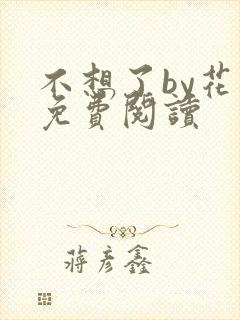 不想了by花
免費閱讀
蔣彥鑫